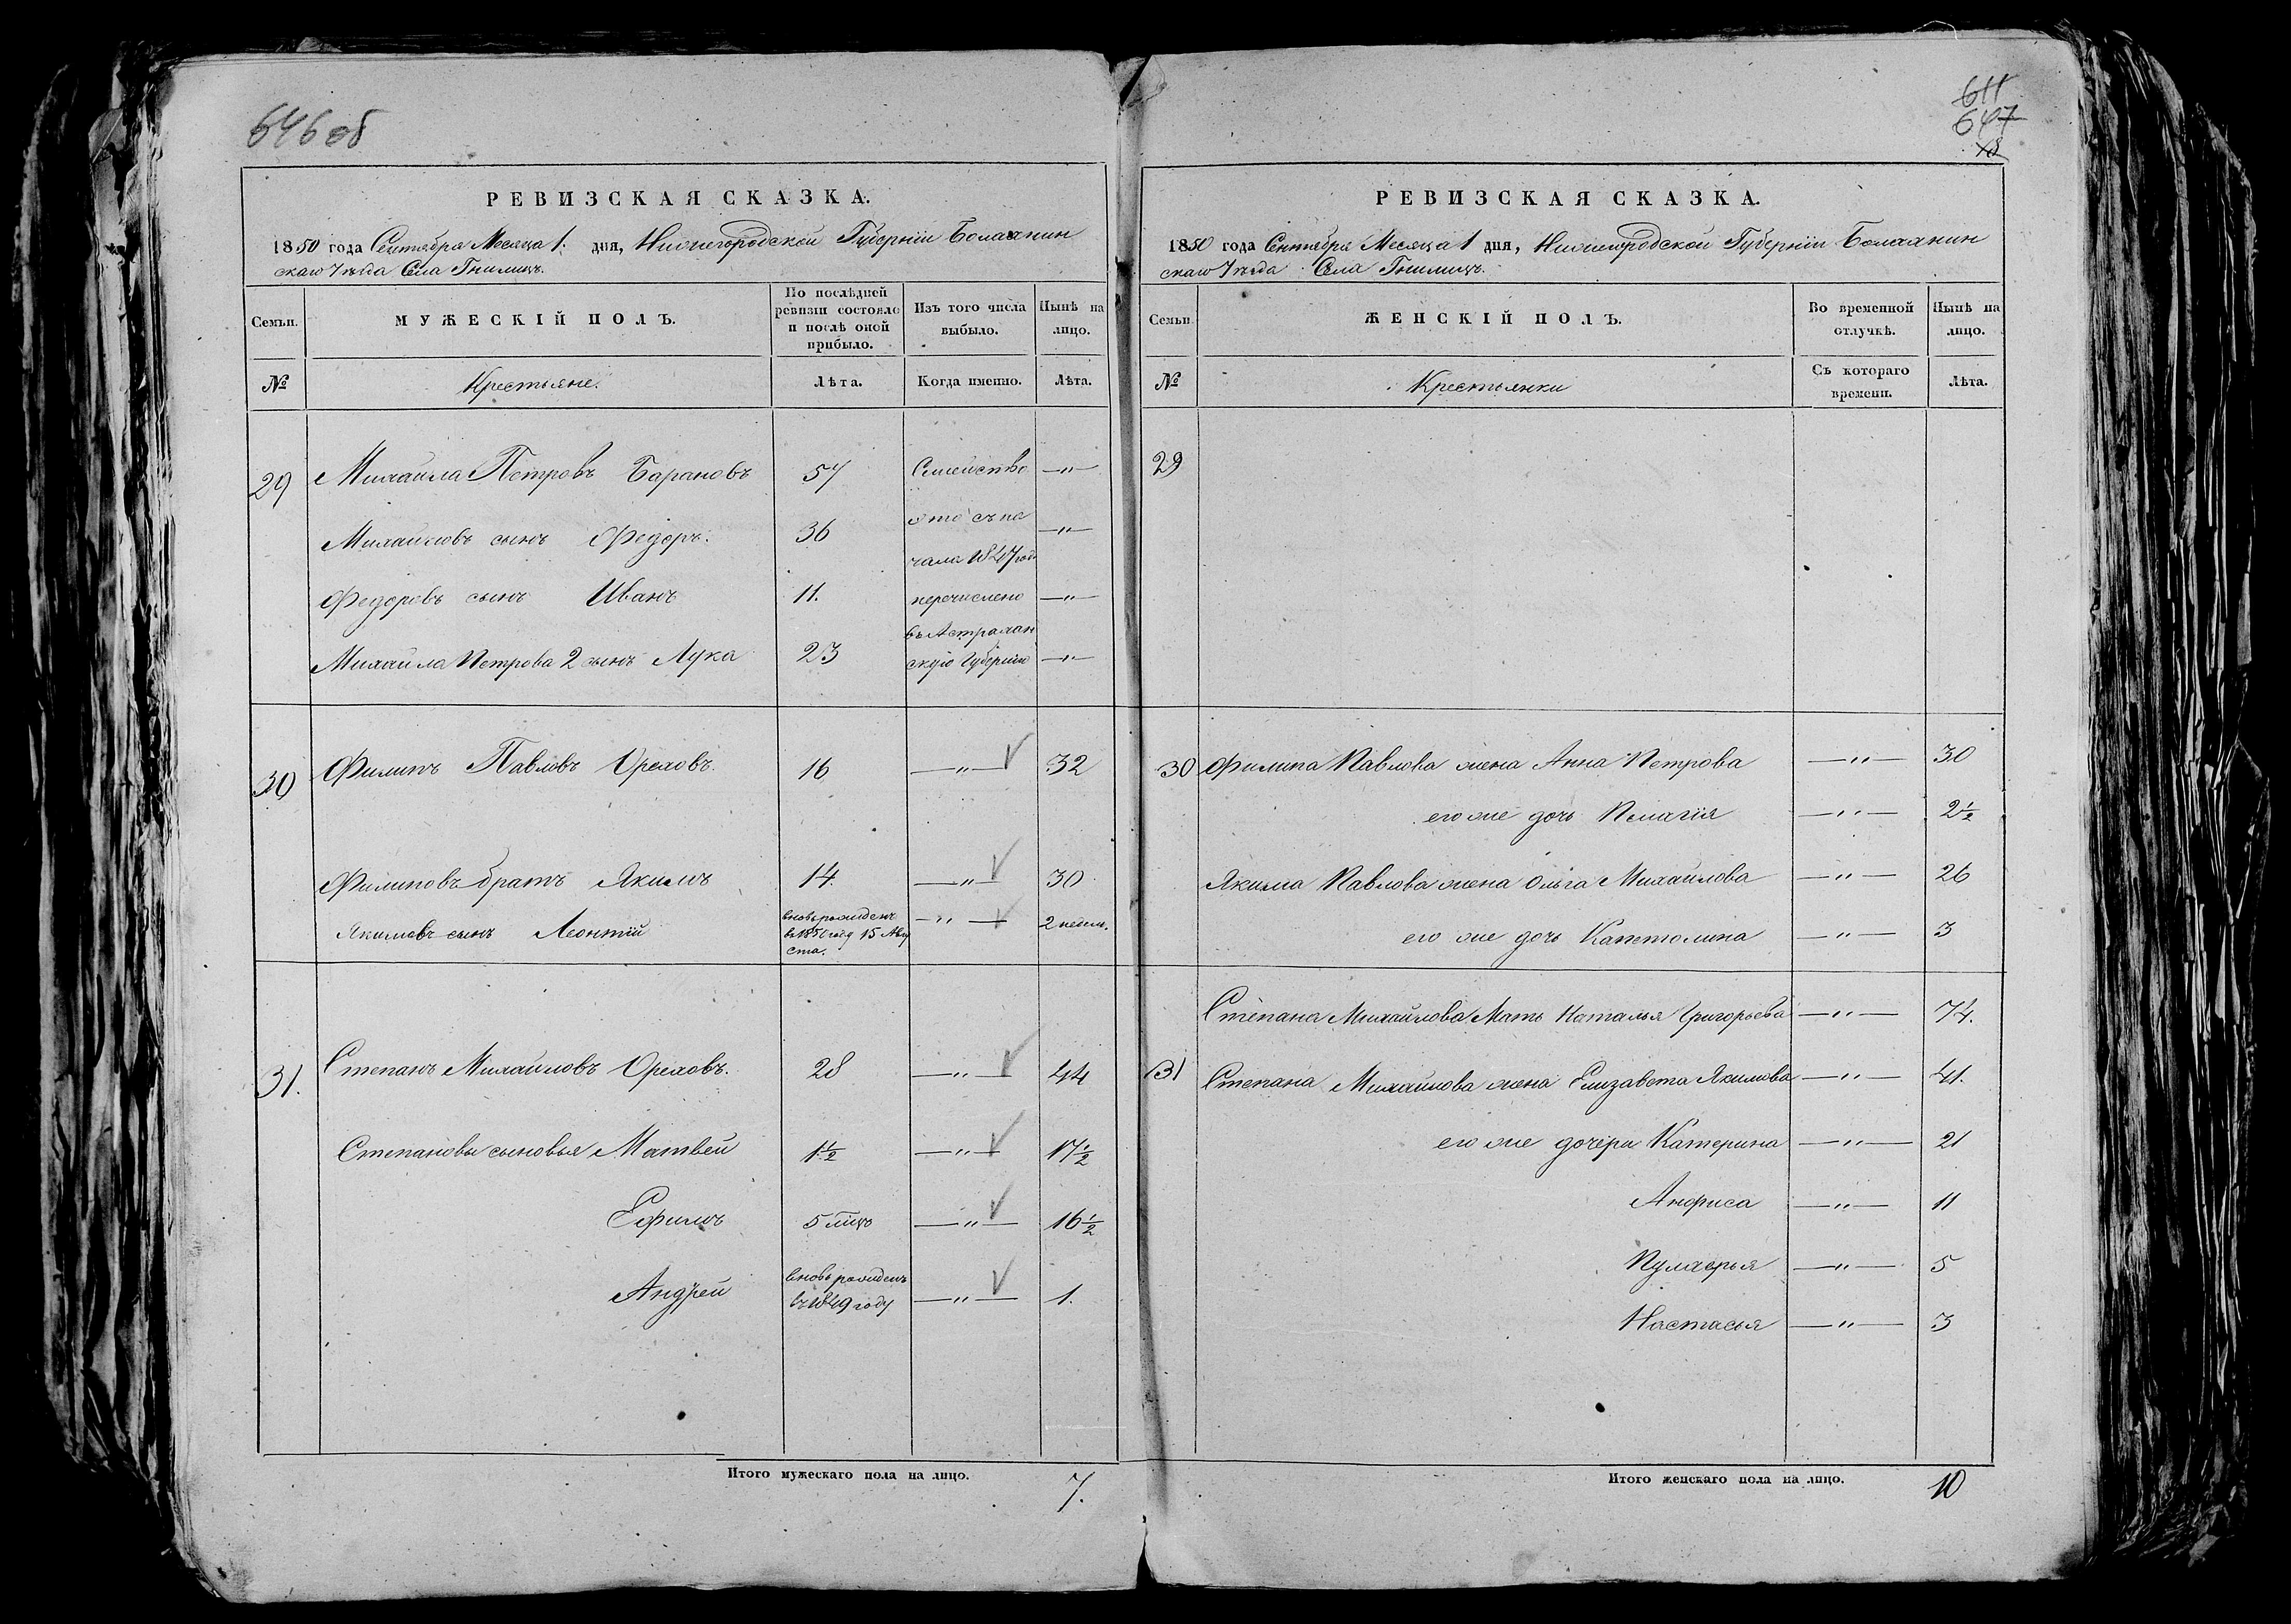 646 об
РЕВИЗСКАЯ СКАЗКА.
1850 года Сентября Месяца 1. дня, Нижегородской Губернiи Балахнин
скаго Уезда Села Гнилицъ.
Семьи.
МУЖЕСКIЙ ПОЛЪ.
По послѣдней
ревизiи состояло
и послѣ оной
прибыло.
Изъ того числа
выбыло.
Нынѣ на
лицо.
№
Крестьяне.
Лѣта.
Когда именно.
Лѣта.
29 Михаила Петровъ Барановъ 57 Семейство —"—
Михаиловъ сынъ Федоръ. 36 это съ на —"—
чала 1847 года
Федоровъ сынъ Иванъ 11. перечислено —"—
въ Астрахан
Михаила Петрова 2 сынъ Лука 23 скую Губернiю —"—
30 Филипъ Павловъ Ореховъ. 16 —"— 32
Филиповъ братъ Якимъ 14. —"— 30
Якимовъ сынъ Леонтiй вновь рожденъ —"— 2 недел.
въ 1850 году 15 Авгу
ста.
31. Степанъ Михайловъ Ореховъ. 28 —"— 44
Степановы сыновья Матвей 1 1/2 —"— 17 1/2
Ефимъ 5 мцъ —"— 16 1/2
Андрей вновь рожденъ —"— 1.
въ 1849 году
Итого мужескаго пола на лицо. 7.
611
647
РЕВИЗСКАЯ СКАЗКА.
1850 года Сентября Месяца 1 дня, Нижегородской Губернiи Балахнин
скаго Уезда Села Гнилицъ.
Семьи
ЖЕНСКIЙ ПОЛЪ.
Во временной
отлучкѣ.
Нынѣ на
лицо.
№
Крестьянки
Съ котораго
времени.
Лѣта.
29
30 Филипа Павлова жена Анна Петрова —"— 30
его же дочь Пелагiя —"— 2 1/2
Якима Павлова жена Ольга Михайлова —"— 26
его же дочь Капетолина —"— 3
Степана Михайлова Мать Наталья Григорьева —"— 74.
31 Степана Михайлова жена Елизавета Якимова —"— 41.
его же дочери Катерина —"— 21
Анфиса —"— 11
Пулхерья —"— 5
Настасья —"— 3
Итого женскаго пола на лицо. 10